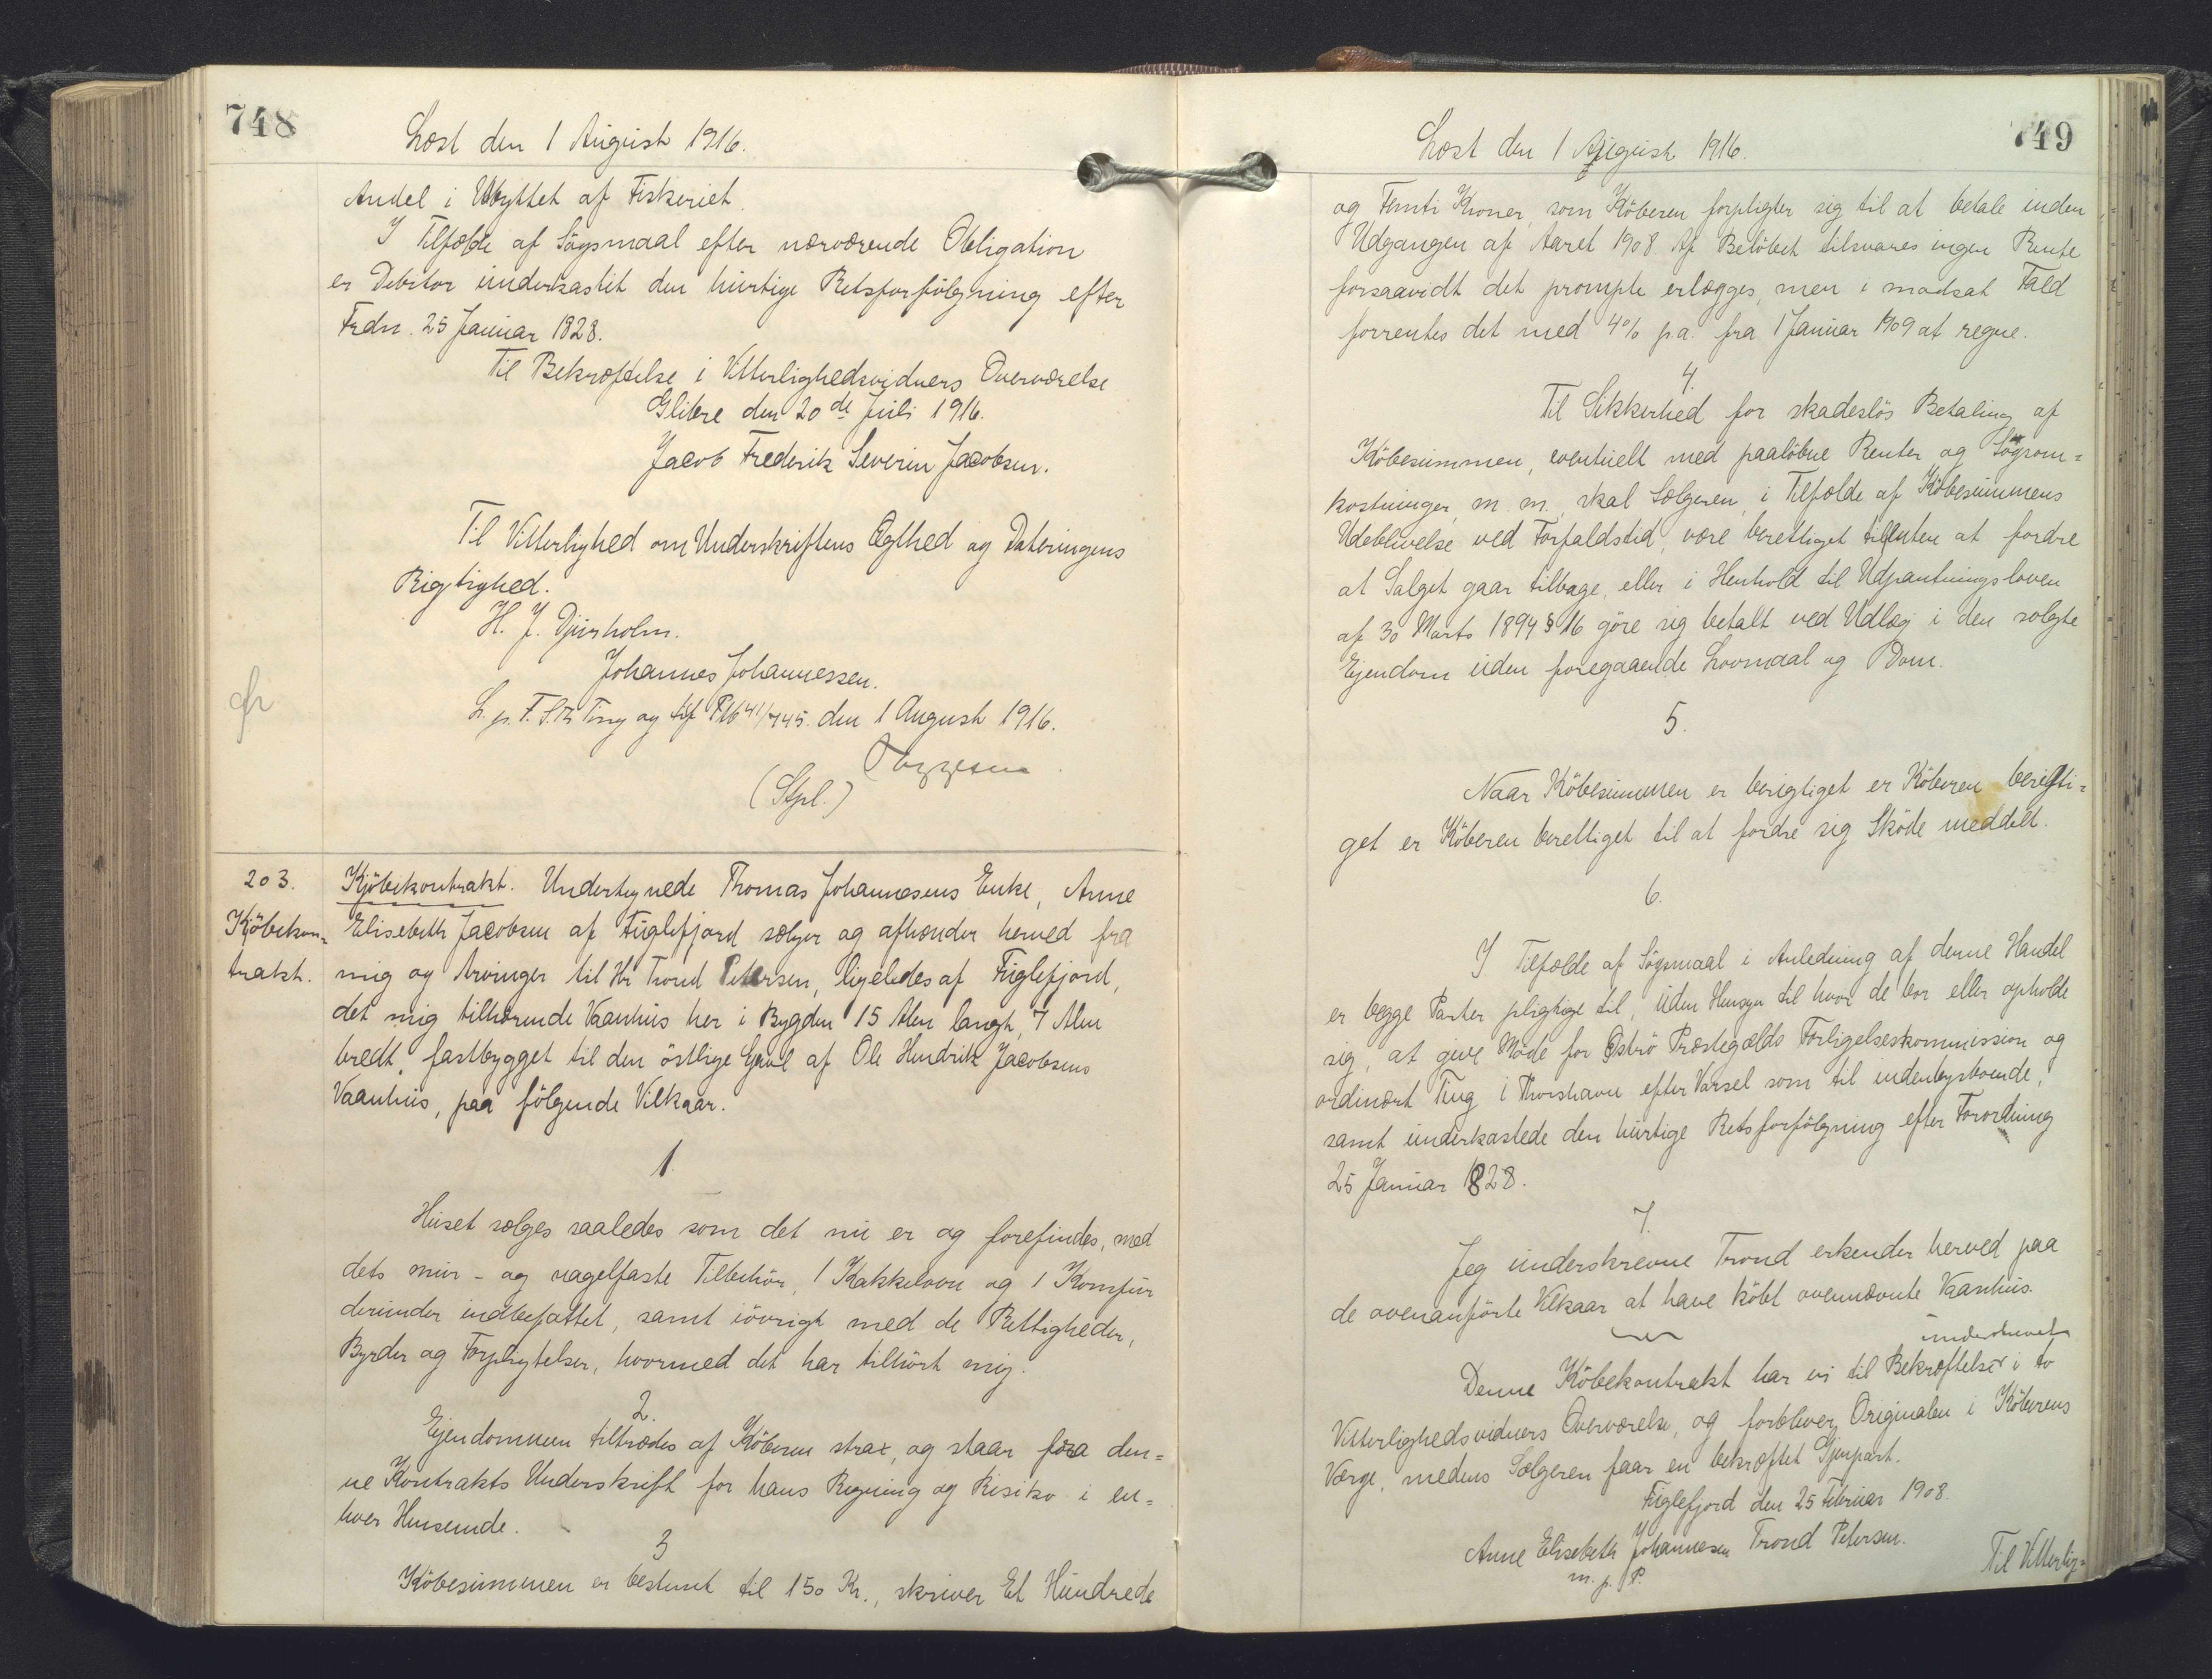 748
Læst den 1 August 1916.
Andel i Udbyttet af Fiskeriet.
I Tilfælde af Sögsmaal efter nærværende Obligation
er Debitor underkastet den hurtige Retsforfölgning efter
Frdn. 25 Januar 1828.
Til Bekræftelse i Vitterlighedsvidners Overværelse
Glibre den 20de Juli 1916.
Jacob Frederik Severin Jacobsen.
Til Vitterlighed om Underskriftens Ægthed og Dateringens
Rigtighed.
H. J. Djurholm.
Johannes Johannessen.
L. p. F. S. Th Ting og tilf P16 41/745. den 1 August 1916.
(Stpl.)
203.
Kjöbekon-
trakt.
Kjöbekontrakt. Undertegnede Thomas Johannesens Enke, Anne
Elisebeth Jacobsen af Fuglefjord sælger og afhænder herved fra
mig og Arvinger til Hr Trond Petersen, ligeledes af Fuglefjord,
det mig tilhörende Vaanhus her i Bygden 15 Alen langt, 7 Alen
bredt, fastbygget til den östlige Gavl af Ole Hendrik Jacobsens
Vaanhus, paa fölgende Vilkaar.
1.
Huset sælges saaledes som det nu er og forefindes, med
dets mur- og nagelfaste Tilbehör, 1 Kakkelovn og 1 Komfur
derunder indbefattet, samt iövrigt med de Rettigheder,
Byrder og Forpligtelser, hvormed det har tilhört mig.
2.
Ejendommen tiltrædes af Köberen strax, og staar fra den=
ne Kontrakts Underskrift for hans Regning og Risiko i en=
hver Henseende.
3
Köbesummen er bestemt til 150 Kr., skriver Et Hundrede
749
Læst den 1 August 1916.
og Femti Kroner, som Köberen forpligter sig til at betale inden
Udgangen af Aaret 1908. Af Belöbet tilsvares ingen Rente
forsaavidt det prompte erlægges, men i modsat Fald
forrentes det med 4% p.a. fra 1 Januar 1909 at regne.
4.
Til Sikkerhed for skadeslös Betaling af
Köbesummen, eventuelt med paalöbne Renter og Sögsom=
kostninger, m. m., skal Sælgeren, i Tilfælde af Köbesummens
Udeblivelse ved Forfaldstid, være berettiget til enten at fordre
at Salget gaar tilbage, eller i Henhold til Udpantningsloven
af 30 Marts 1894 § 16 göre sig betalt ved Udlæg i den solgte
Ejendom uden foregaaende Lovmaal og Dom.
5.
Naar Köbesummen er berigtiget er Köberen berigti=
get er Köberen berettiget til at fordre sig Sköde meddelt.
6.
I Tilfælde af Sögsmaal i Anledning af denne Handel
er begge Parter pligtige til, uden Hensyn til hvor de bor eller opholde
sig, at give Möde for Öströ Præstegælds Forligelseskommission og
ordinært Ting i Thorshavn efter Varsel som til indenbysboende,
samt underkastede den hurtige Retsforfölgning efter Forordning
25 Januar 1828.
7.
Jeg underskrevne Trond erkender herved paa
de ovenanförte Vilkaar at have köbt ovennævnte Vaanhus.
underskrevet
Denne Köbekontrakt har vi til Bekræftelse i to
Vitterlighedsvidners Overværelse, og forbliver Originalen i Köberens
Værge, medens Sælgeren faar en bekræftet Gjenpart.
Fuglefjord den 25 Februar 1908.
Anne Elisebeth Johannesen Trond Petersen.
m. p. P.
Til Vitterlig=